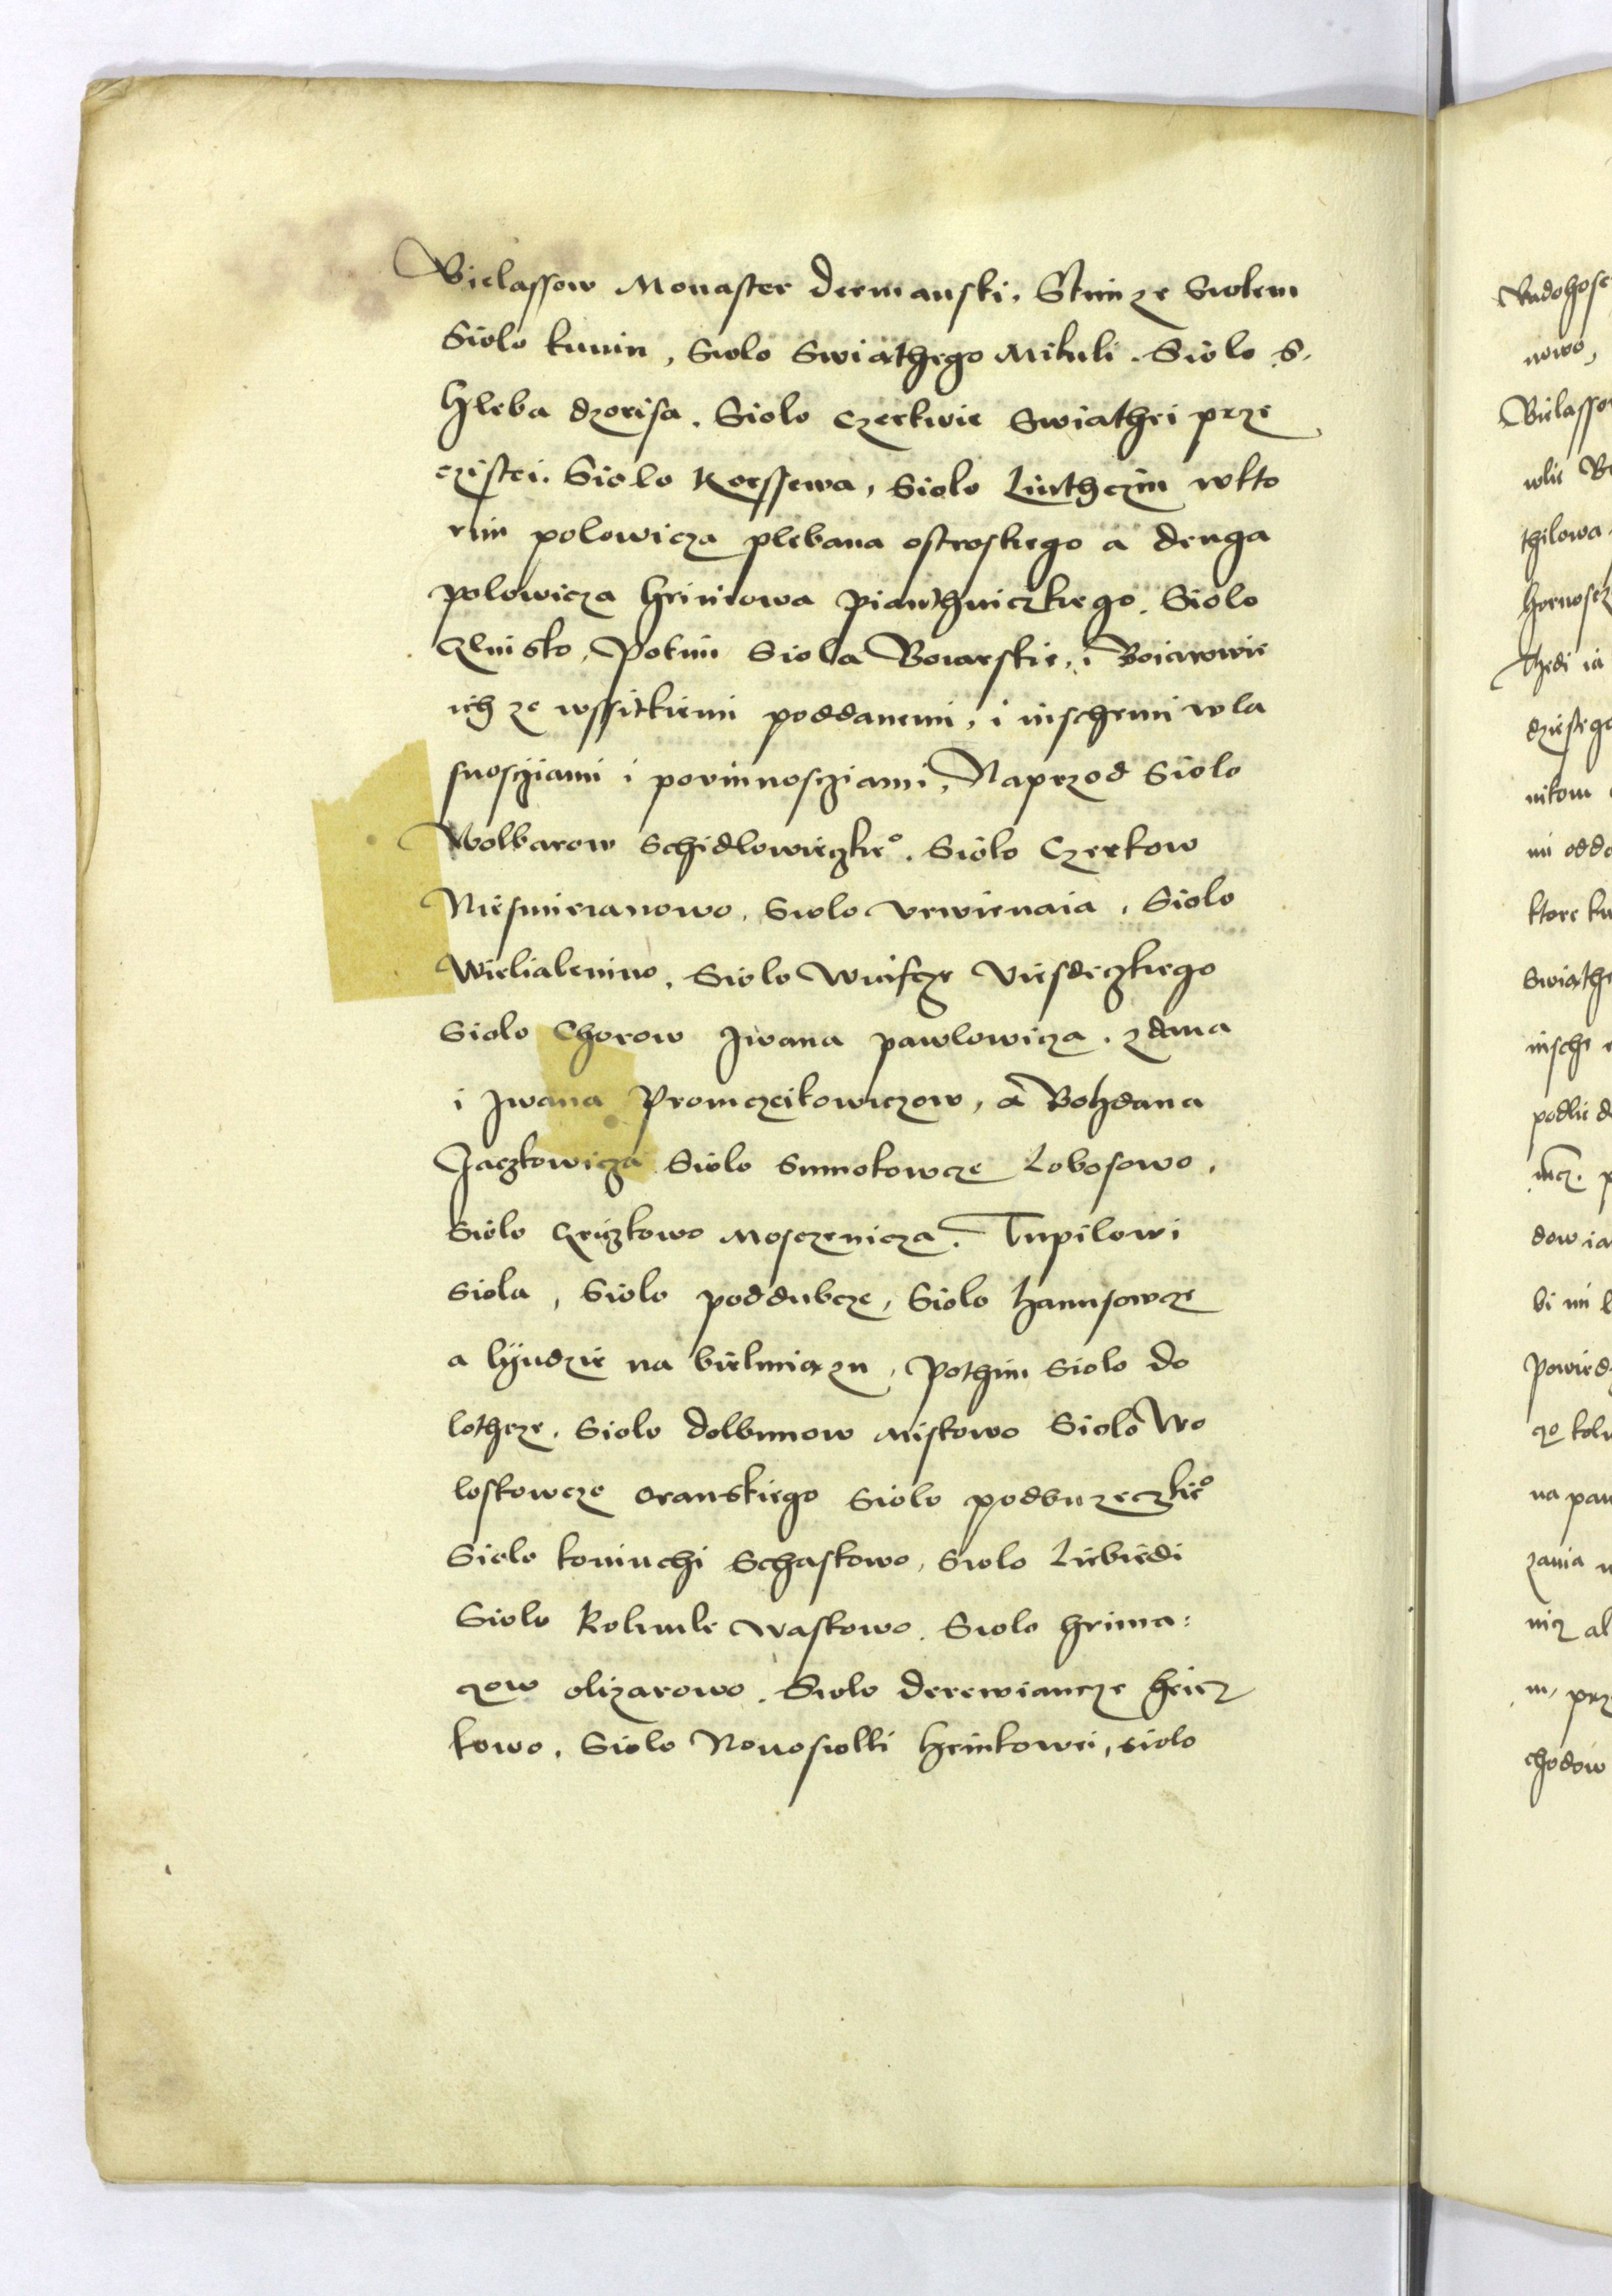 Bielassow Monaster dermanski, Stim ze Siolem
Siolo kunin, Siolo Swiathego Mikuli. Siolo S.
Hleba dzorisa. Siolo czerkwie Swiathei prze
czistei. Siolo Korssewa, Siolo Linthczin wkto
rim polowicza plebana ostroskiego a druga
polowicza hriniowa pianthniczkiego. Siolo
Potim Siola Boiarskie, i Boiarowie
ich ze wssitkiemi poddanemi, i inschemi wla
snosciami i powinnosciami, Naprzod Siolo
Wolbarow Schidlowieczkie°. Siolo Czerkow
Niesmieranowo. Siolo Urwienaia. Siolo
Wielialenino. Siolo Wiliscze Viesdeczkiego
Siolo Chorow Iwana pawlowicza. zdana
i Iwana Promczeikowiczow, a Bohdana
Jaczkowicza Siolo Smmokowcze Lobosowo.
Siolo Hriczkowo Mosczenicza. Tupilowi
Siola, Siolo poddubcze, Siolo hanusowcze
a hÿudzie na bielmiazu, Pothim Siolo do
lothcze. Siolo dolbunow Miskowo Siolo Wo
loskowcze oranskiego Siolo podbuzeczkie°
Siolo koniuchi Schaskowo, Siolo Liebiedi
Siolo Kolimle waskowo. Siolo hrima:
czow olizarowo. Siolo derewiancze hricz
kowo. Siolo Nowosiolki hrinkowei, siolo
Radohosc
nowo,
Bielasso
wlie Bo
thilowa
hornosz
Thedi ia
dziesiego
nikom
mi oddo
ktore ku
Swiathe
insche
podlie d
dow ia
bi mi
powied
czo kol
na pan
zania
nicz al
prz
chodow